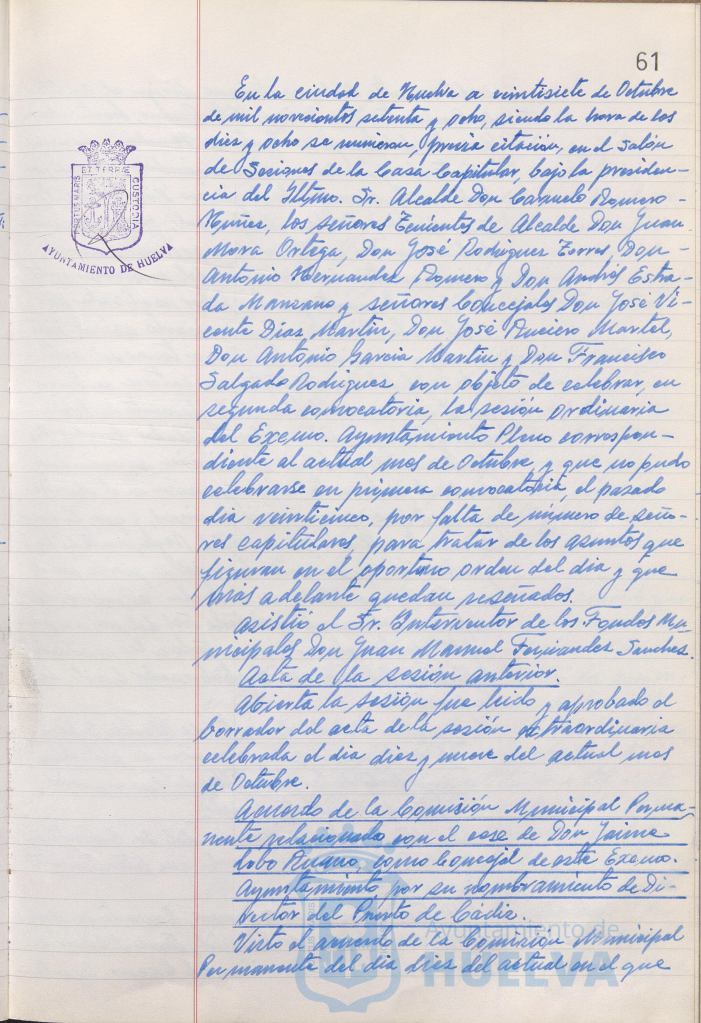 61
En la ciudad de Huelva a veintisiete de Octubre
de mil novecientos setenta y ocho, siendo la hora de las
diez y ocho se reunieron, previa citación, en el Salón
de Sesiones de la Casa Capitular, bajo la presiden-
cia del Iltmo. Sr. Alcalde Don Carmelo Romero
Núñez, los señores Tenientes de Alcalde Don Juan
Mora Ortega, Don José Rodríguez Torres, Don
Antonio Hernandez Romero y Don Andrés Estra-
da Manzano y señores Concejales Don José Vi-
cente Díaz Martín, Don José Ruciero Martel,
Don Antonio García Martín y Don Francisco
Salgado Rodríguez, con objeto de celebrar, en
segunda convocatoria, la sesión ordinaria
del Excmo. Ayuntamiento Pleno correspon-
diente al actual mes de Octubre, y que no pudo
celebrarse en primera convocatoria, el pasado
día veinticinco, por falta de número de seño-
res capitulares, para tratar de los asuntos que
figuran en el oportuno orden del día y que
más adelante quedan reseñados.
Asistió el Sr. Interventor de los Fondos Mu-
nicipales Don Juan Manuel Fernández Sanchez.
Acta de la sesión anterior.
Abierta la sesión fue leido y aprobado el
borrador del acta de la sesión extraordinaria
celebrada el día diez y nueve del actual mes
de Octubre.
Acuerdo de la Comisión Municipal Perma-
nente relacionado con el cese de Don Jaime
como Concejal de este Excmo.
Ayuntamiento, por su nombramiento de Di-
rector del Puerto de Cádiz.
Visto el acuerdo de la Comisión Municipal
Permanente del día diez del actual en el que
PORTUS MARIS ET TERRAE CUSTODIA
AYUNTAMIENTO DE HUELVA
Ayuntamiento de
HUELVA